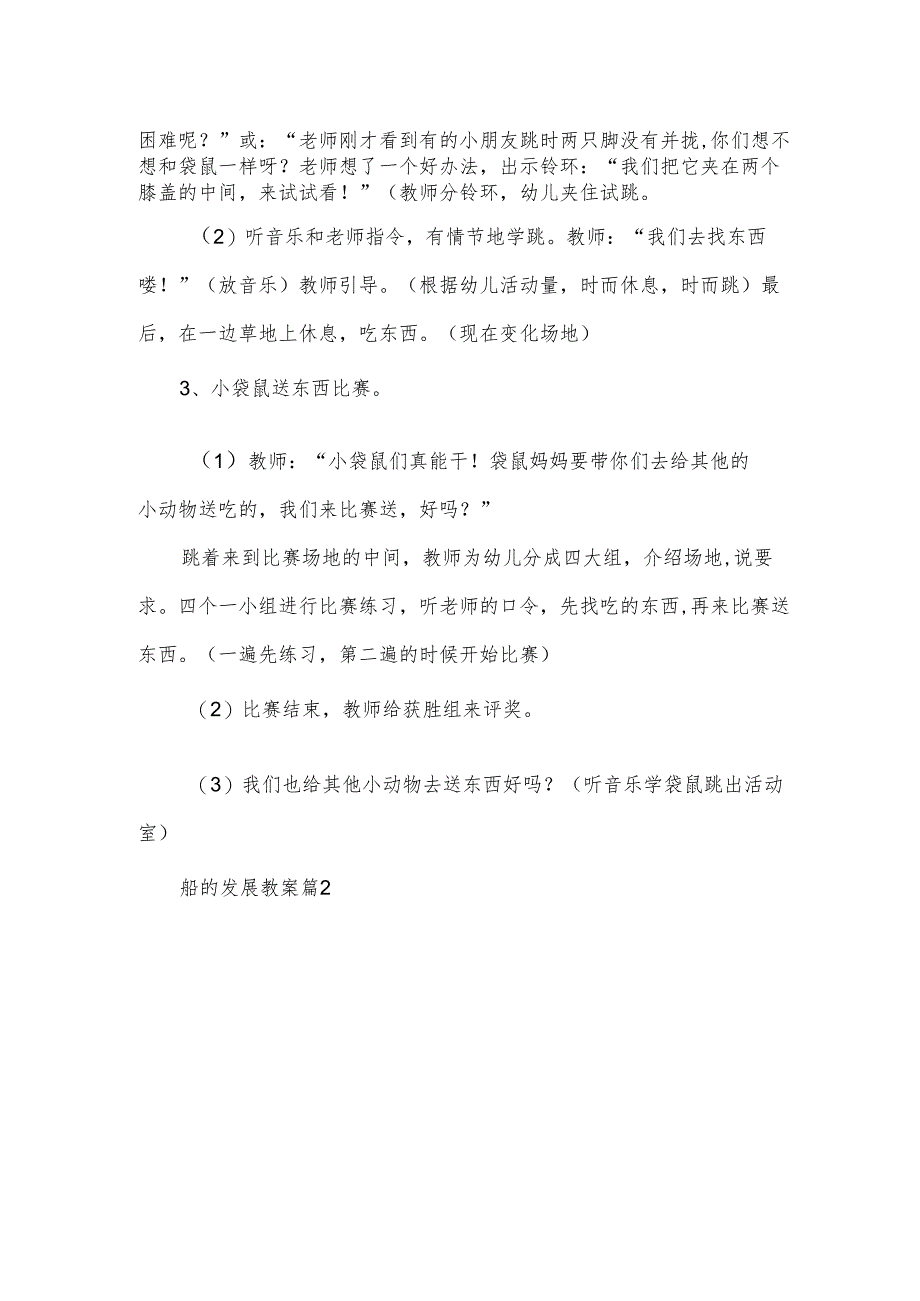 困难呢？”或：“老师刚才看到有的小朋友跳时两只脚没有并拢,你们想不
想和袋鼠一样呀？老师想了一个好办法，出示铃环：“我们把它夹在两个
膝盖的中间，来试试看！”（教师分铃环，幼儿夹住试跳。
（2）听音乐和老师指令，有情节地学跳。教师：“我们去找东西
喽！”（放音乐）教师引导。（根据幼儿活动量，时而休息，时而跳）最
后，在一边草地上休息，吃东西。（现在变化场地）
3、小袋鼠送东西比赛。
（1）教师：“小袋鼠们真能干！袋鼠妈妈要带你们去给其他的
小动物送吃的，我们来比赛送，好吗？”
跳着来到比赛场地的中间，教师为幼儿分成四大组，介绍场地,说要
求。四个一小组进行比赛练习，听老师的口令，先找吃的东西,再来比赛送
东西。（一遍先练习，第二遍的时候开始比赛）
（2）比赛结束，教师给获胜组来评奖。
（3）我们也给其他小动物去送东西好吗？（听音乐学袋鼠跳出活动
室）
船的发展教案篇2